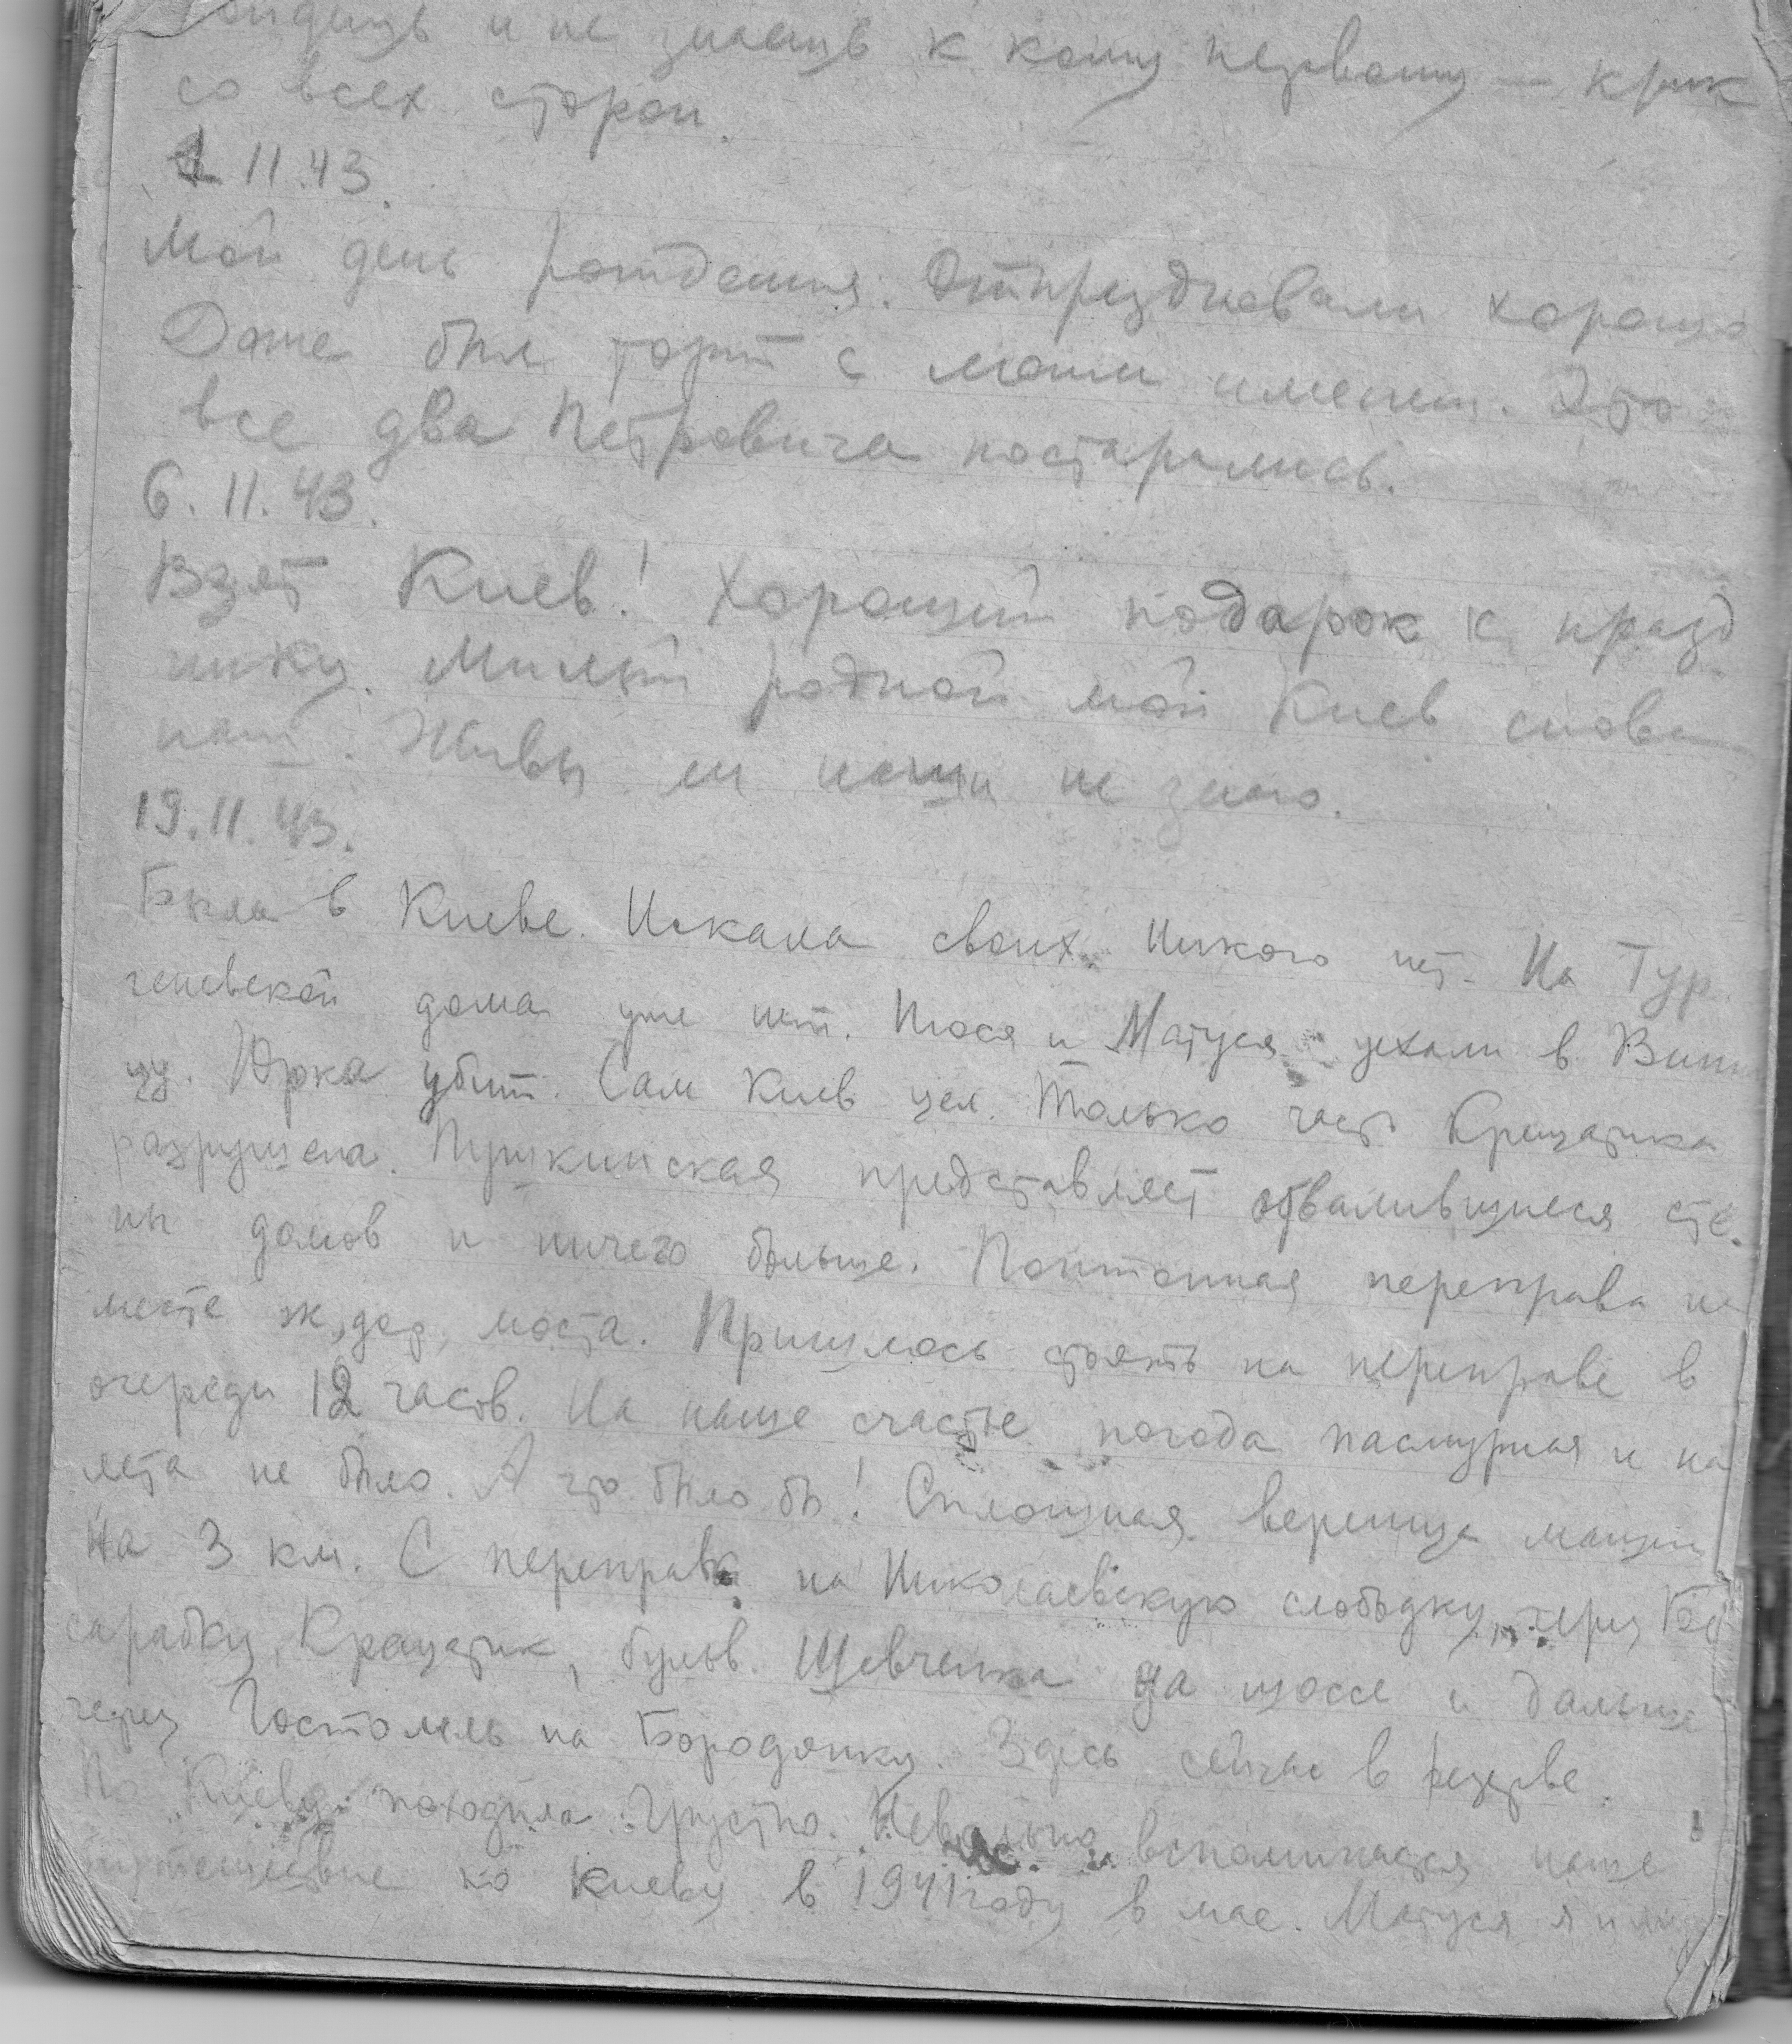 и не знаешь к кому первому — крик
со всех сторон.
1 11.43.
Мой день рождения. Отпраздновали хорошо
Даже был торт с моим именем. Это
все два Петровича постарались.
6. 11. 43.
Взят Киев! Хороший подарок к празд
нику. Милый родной мой Киев снова
наш. Живы ли наши не знаю.
19. 11. 43.
Была в Киеве. Искала своих. Никого нет. На Тур
геневской дома уже нет. Нюся и Матуся уехали в Винни
цу. Юрка убит. Сам Киев цел. Только часть Крещатика
разрушена. Пушкинская представляет обвалившиеся сте.
ны домов и ничего больше. Понтонная переправа на
месте ж,дор, моста. Пришлось стоять на переправе в
очереди 12 часов. На наше счастье погода пасмурная и на
лета не было. А что было бы! Сплошная вереница машин
на 3 км. С переправы на Николаевскую слободку, через Бес
сарабку, Крещатик, бульв. Шевченка на шоссе и дальше
через Гостомель на Бородянку. Здесь сейчас в резерве.
По Киеву походила. Грустно. Невольно вспоминается наше
путешествие по Киеву в 1941 году в мае. Матуся я и